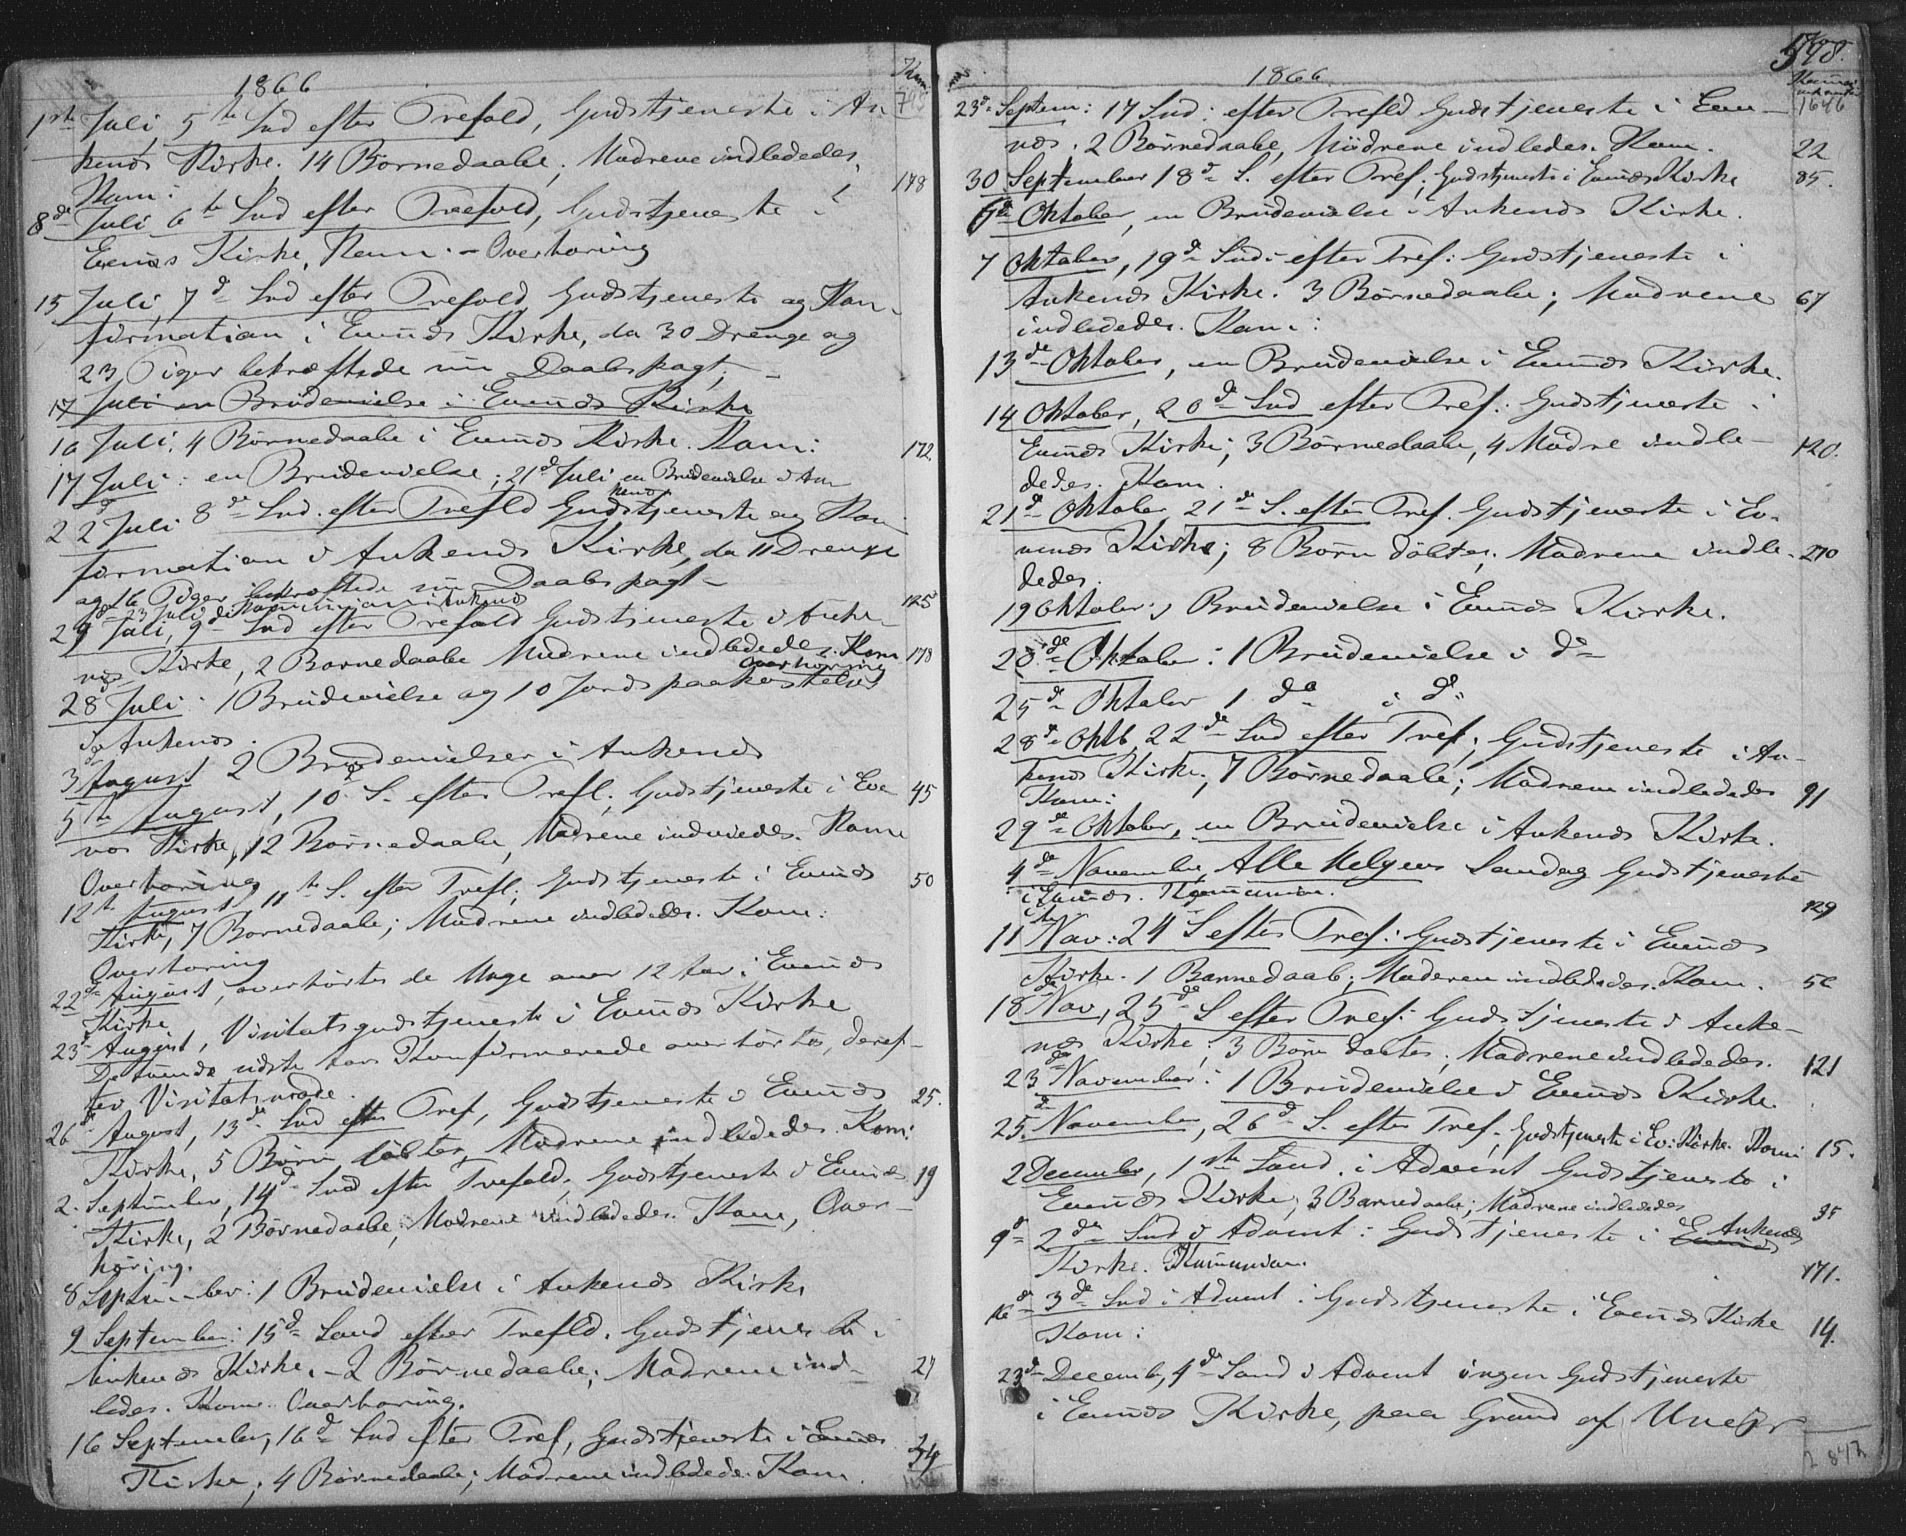 1866
Kom:
743
1ste Juli, 5te Snd efter Trefold, Gudstjeneste i An
kenæs Kirke. 14 Børnedaabe, Mødrene indlededes,
Kom: 178
8de Juli 6te Snd efter Trefold, Gudstjeneste i
Evenæs Kirke, Kom: – Overhøring
15 Juli, 7d Snd efter Trefold, Gudstjeneste og Kon-
firmation i Evenæs Kirke, da 30 Drenge og
23 Piger bekræftede sin Daabspagt; –
17 Juli en Brudevielse i Evenæs Kirke
16 Juli: 4 Børnedaabe i Evenæs Kirke. Kom: 172.
17 Juli: en Brudevielse; 21d Juli en Brudevielse i An
kenæs
22d Juli 8de Snd. efter Trefld Gudstjeneste og Kon
firmation i Ankenæs Kirke, da 11 Drenge
og 16 Piger bekræftede sin Daabspagt –
23 Juli Kommunion i Ankenæs 125
29 Juli, 9de Snd efter Trefold Gudstjeneste i Anke-
næs Kirke, 2 Børnedaabe Mødrene indlededes. Kom 178
Overhøring
28d Juli: 1 Brudevielse og 10 Jordspaakastelser
i Ankenæs.
3de August 2 Brudevielser i Ankenæs
5te August, 10d S. efter Trefl; Gudstjeneste i Eve 45
næs Kirke, 12 Børnedaabe, Mødrene indviedes. Kom
Overhøring
12te August 11te S. efter Trefl; Gudstjeneste i Evenæs 50
Kirke, 7 Børnedaabe; Mødrene indlededes. Kom:
Overhøring
22de August, overhørtes de Unge over 12 Aar i Evenæs
Kirke
23d August, Visitatsgudstjeneste i Evenæs Kirke
De tvende sidste Aars Konfirmerede overhørtes, deref-
ter Visitatsmøde.
26d August, 13de Snd efter Tref, Gudstjeneste i Evenæs 25.
Kirke, 5 Børn døbtes, Mødrene indlededes. Kom:
2. September, 14d Snd efter Trefold, Gudstjeneste i Evenæs 19
Kirke, 2 Børnedaabe; Mødrene indlededes. Kom, Over-
høring.
8 September: 1 Brudevielse i Ankenæs Kirke
9 September: 15d Sønd efter Trefld. Gudstjeneste i
Ankenæs Kirke. – 2 Børnedaabe; Mødrene ind- 24
ledes. Kom. Overhøring.
16 September, 16d Snd efter Tref, Gudstjeneste i Evenæs 34
Kirke; 4 Børnedaabe; Mødrene indlededes. Kom.
548.
1866
1646
23d Septem: 17 Snd: efter Trefld Gudstjeneste i Eve-
næs. 2 Børnedaabe, Mødrene indledes. Kom. 22
30 September 18d S. efter Tref; Gudstjeneste i Evenæs Kirke 85.
6d Oktober, en Brudevielse i Ankenæs Kirke.
7 Oktober, 19d Snd: efter Tref: Gudstjeneste i
Ankenæs Kirke. 3 Børnedaabe; Mødrene 67
indlededes. Kom:
13de Oktober, en Brudevielse i Evenæs Kirke.
14 Oktober, 20d Snd efter Tref: Gudstjeneste i
Evenæs Kirke; 3 Børnedaabe, 4 Mødre indle- 120.
dedes. Kom.
21d Oktober 21d S. efter Tref. Gudstjeneste i Ev-
enæs Kirke; 8 Børn døbtes; Mødrene indle- 270
dedes.
19 Oktober: 1 Brudevielse i Evenæs Kirke.
20de Oktober: 1 Brudevielse i do
25d Oktober 1 do i do
28d Oktb. 22de Snd efter Tref; Gudstjeneste i An-
kenæs Kirke; 7 Børnedaabe; Mødrene indlededes 91
Kom:
29de Oktober, en Brudevielse i Ankenæs Kirke.
4de November Alle Helgens Søndag Gudstjeneste
i Evenæs. Kommunion. 129
11te Nov: 24 S efter Tref: Gudstjeneste i Evenæs
Kirke. 1 Barnedaab; Moderen indlededes. Kom. 56
18de Nov, 25de S efter Tref: Gudstjeneste i Anke-
næs Kirke; 3 Børn døbtes; Mødrene indlededes. 121
23de November: 1 Brudevielse i Evenæs Kirke
25d. November, 26d S. efter Tref; Gudstjeneste i Ev: Kirke. Kom: 15.
2 December, 1ste Sønd. i Advent Gudstjeneste i
Evenæs Kirke; 3 Barnedaabe; Mødrene indlededes 35
9d 2de Snd i Advent: Gudstjeneste i Evenæs Ankenæs
Kirke. Kommunion. 171.
16d 3de Snd i Advent: Gudstjeneste i Evenæs Kirke
Kom: 14.
23d Decemb, 4d Sønd i Advent ingen Gudstjeneste
i Evenæs Kirke, paa Grund af Uveir
2847